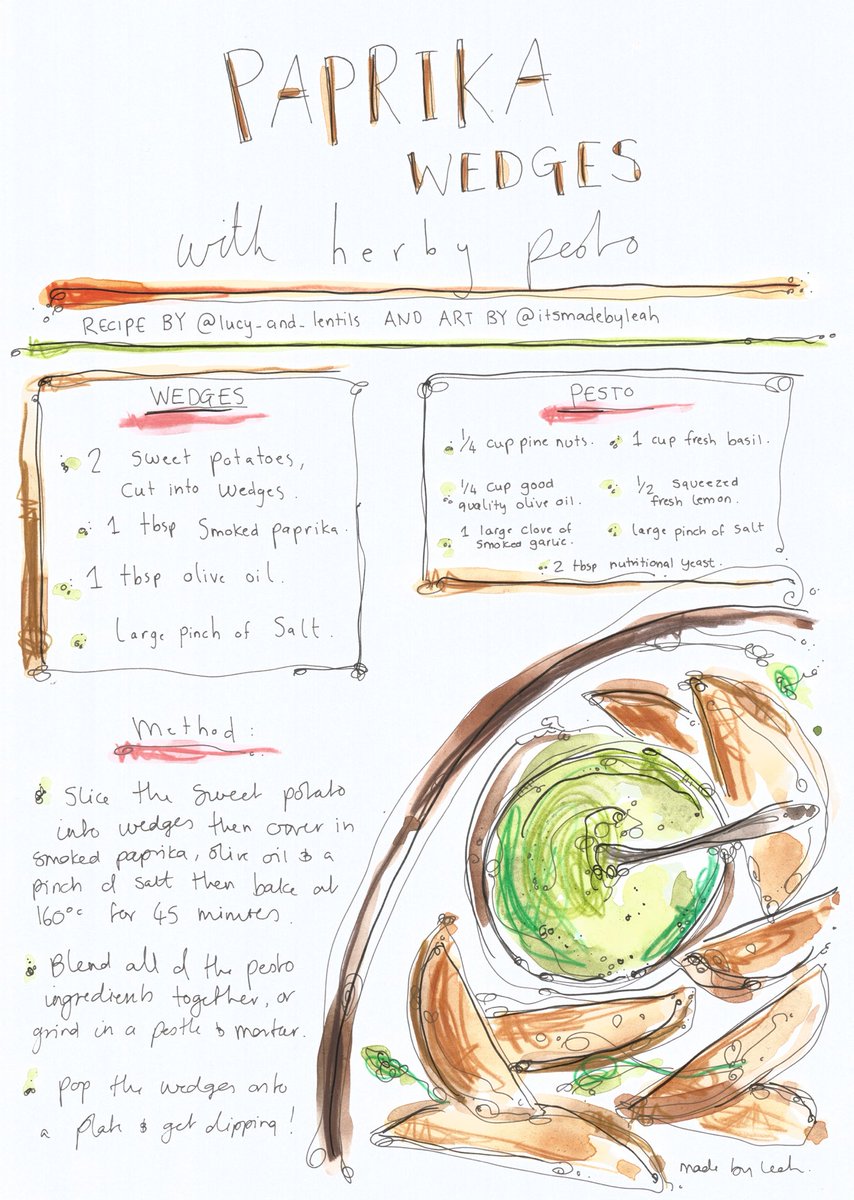 PAPRIKA
WEDGES
with herby pesto
RECIPE BY @lucy_and_lentils AND ART BY @itsmadebyleah
WEDGES
2 Sweet potatoes,
Cut into Wedges.
1 tbsp Smoked paprika.
1 tbsp olive oil.
Large pinch of Salt.
PESTO
1/4 cup pine nuts.
1 cup fresh basil.
1/4 cup good
quality olive oil.
1/2 squeezed
fresh lemon.
1 large clove of
smoked garlic.
large pinch of salt
2 tbsp nutritional yeast.
Method:
Slice the sweet potato
into wedges then cover in
smoked paprika, olive oil & a
pinch of salt then bake at
160°c for 45 minutes.
Blend all of the pesto
ingredients together, or
grind in a pestle & mortar.
Pop the wedges onto
a plate & get dipping!
made by Leah.